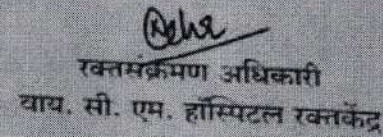 रक्तसंक्रमण अधिकारी
वाय. सी. एम. हॉस्पिटल रक्तकेंद्र